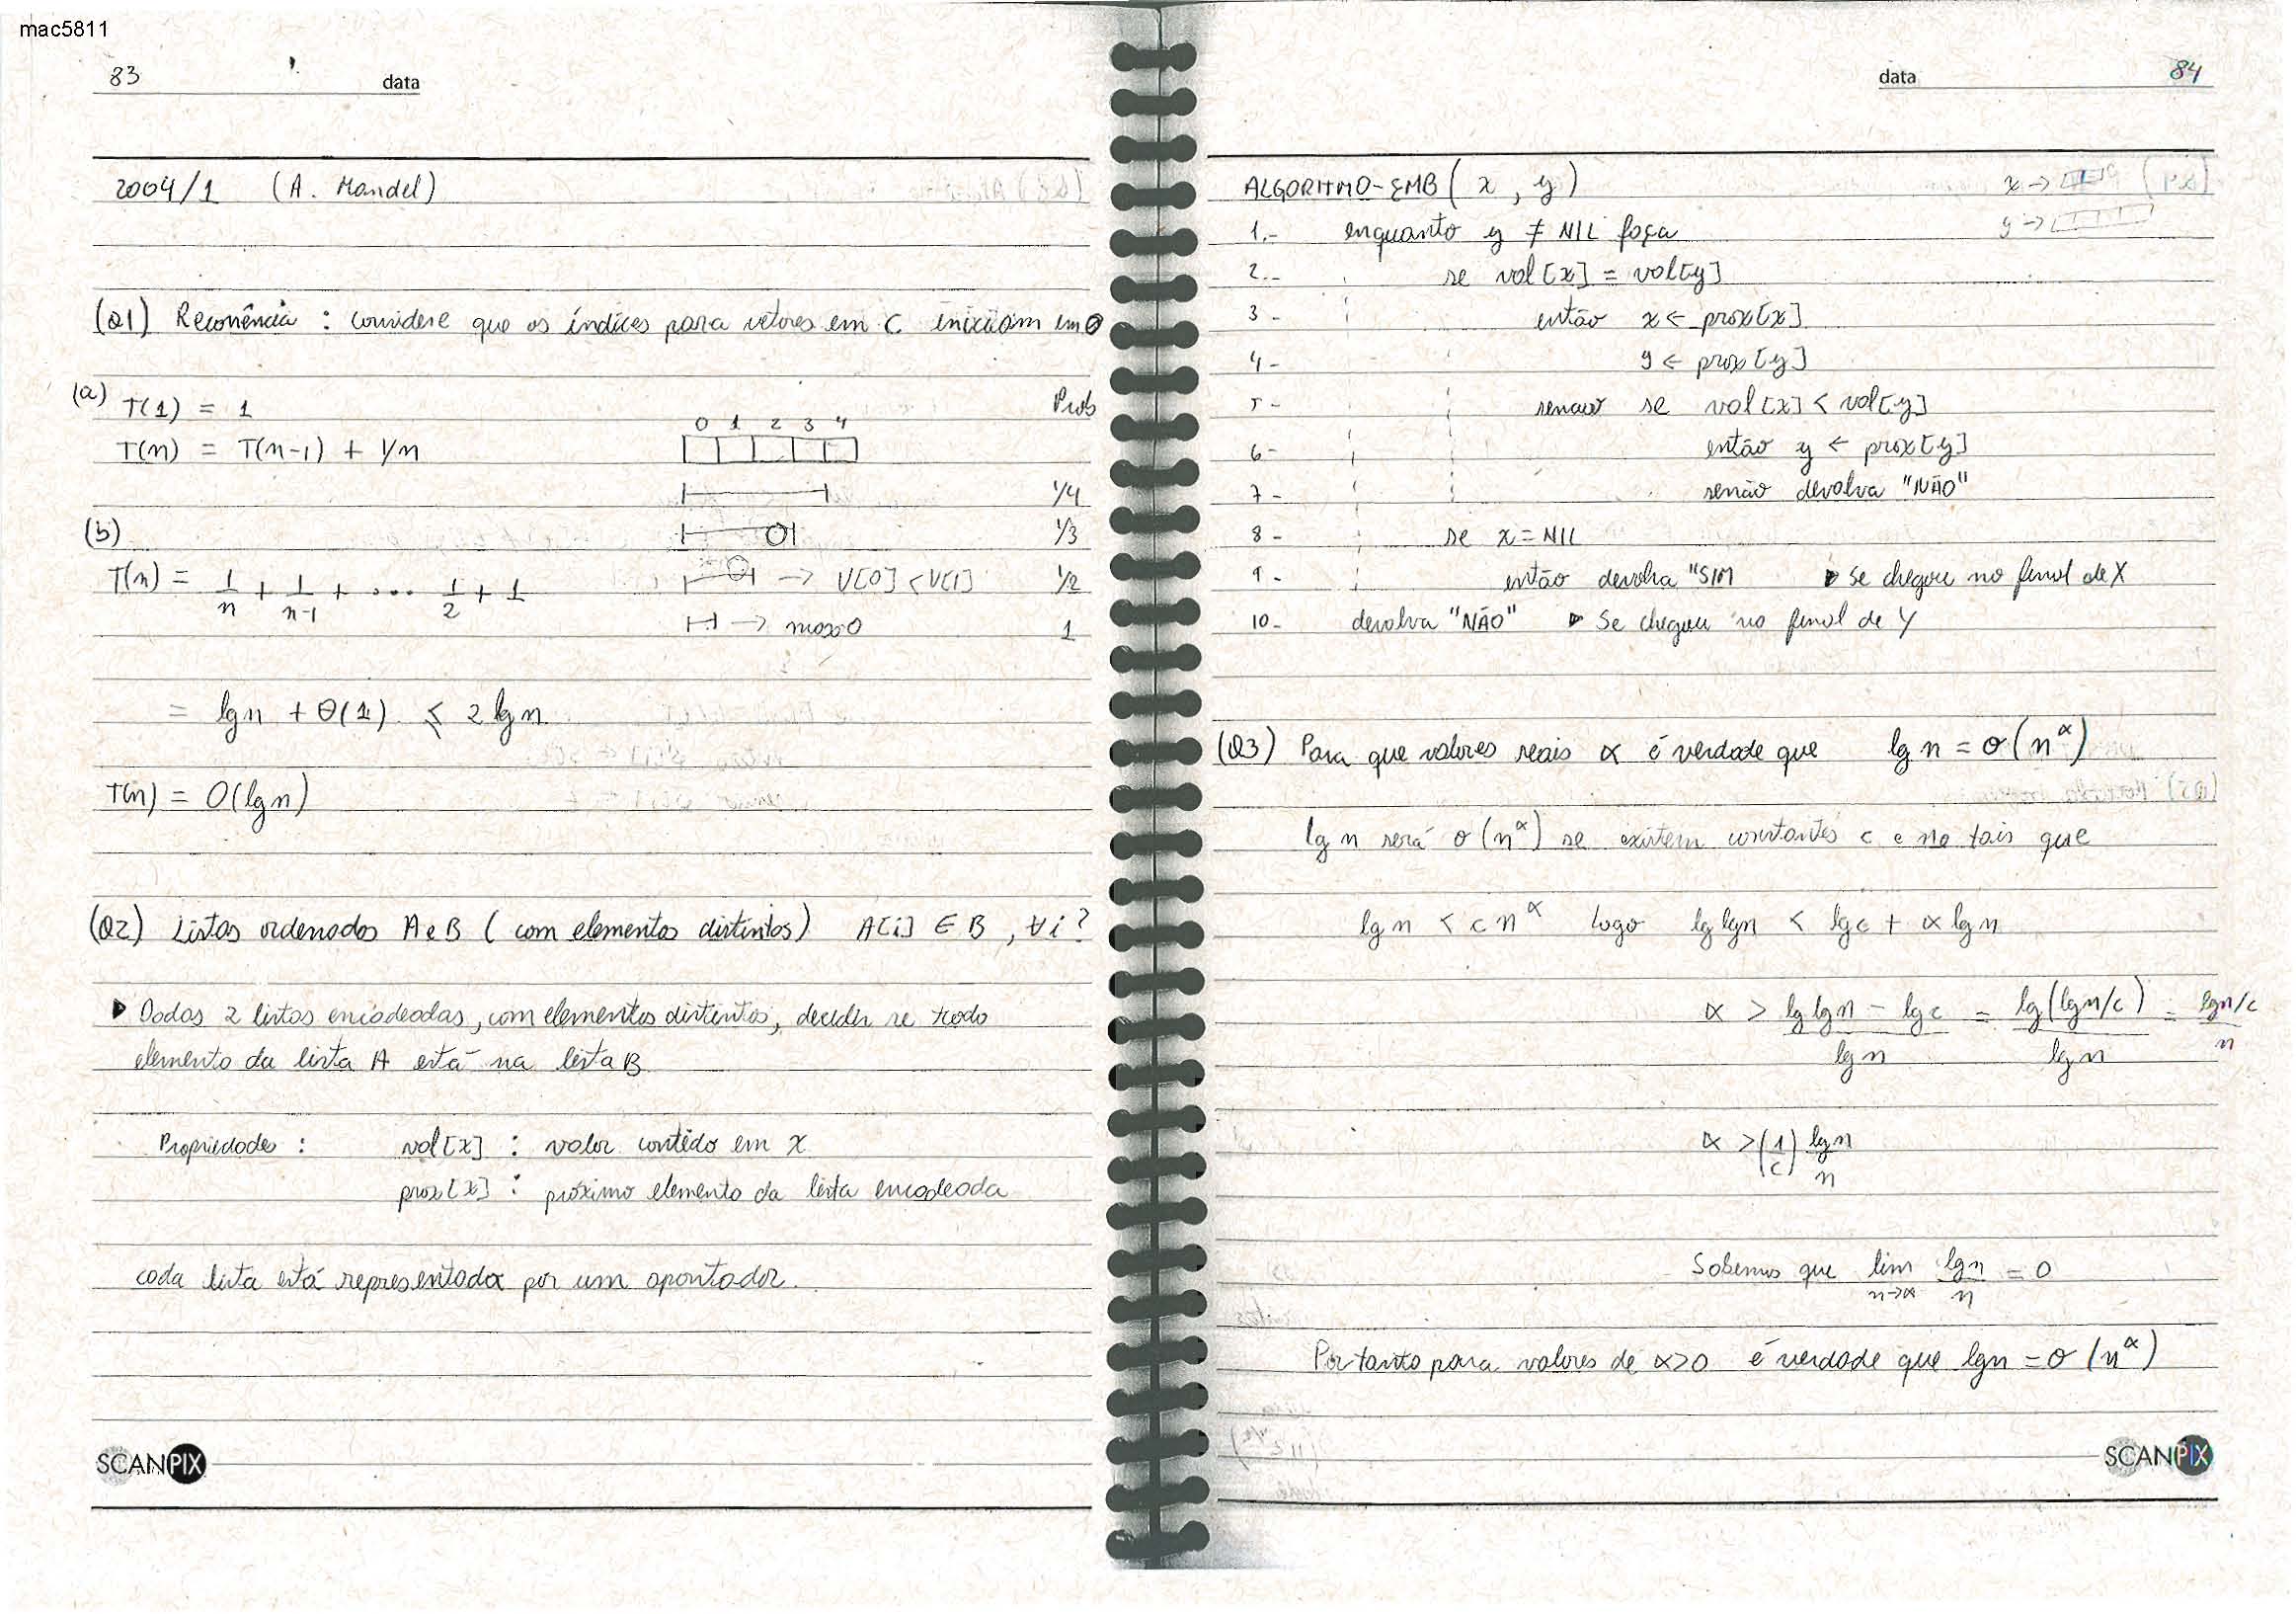 mac5811
83
data
2004/1 (A. Mandel)
(Q1) Recorrência : considere que os índices para vetores em C iniciam em 0
(a) T(1) = 1
T(n) = T(n-1) + 1/n
Prob
0 1 2 3 4
1/4
(b)
1/3
T(n) = 1/n + 1/n-1 + ... 1/2 + 1
→ V[0] < V[1] 1/2
→ max=0 1
= lg n + Θ(1) ≤ 2 lg n
T(n) = O(lg n)
(Q2) Listas ordenadas A e B (com elementos distintos) A[i] ∈ B, ∀i?
▶ Dadas 2 listas encadeadas, com elementos distintos, decidir se todo
elemento da lista A está na lista B
Propriedades : val[x] : valor contido em x
prox[x] : próximo elemento da lista encadeada
cada lista está representada por um apontador.
SCANPIX
data
84
ALGORITMO-EMB(x, y)
x →
y →
1.- enquanto y ≠ NIL faça
2.- se val[x] = val[y]
3 - então x ← prox[x]
4 - y ← prox[y]
5 - senão se val[x] < val[y]
6 - então y ← prox[y]
7 - senão devolva "NÃO"
8 - se x = NIL
9 - então devolva "SIM ▶ Se chegou no final de X
10 - devolva "NÃO" ▶ Se chegou no final de Y
(Q3) Para que valores reais α é verdade que lg n = o(n^α)
lg n será o(n^α) se existem constantes c e n0 tais que
lg n < c n^α logo lg lg n < lg c + α lg n
α > lg lg n - lg c / lg n = lg(lg n/c) / lg n = lg n/c / n
α > (1/c) lg n / n
Sabemos que lim n→∝ lg n / n = 0
Portanto para valores de α>0 é verdade que lg n = o(n^α)
SCANPIX